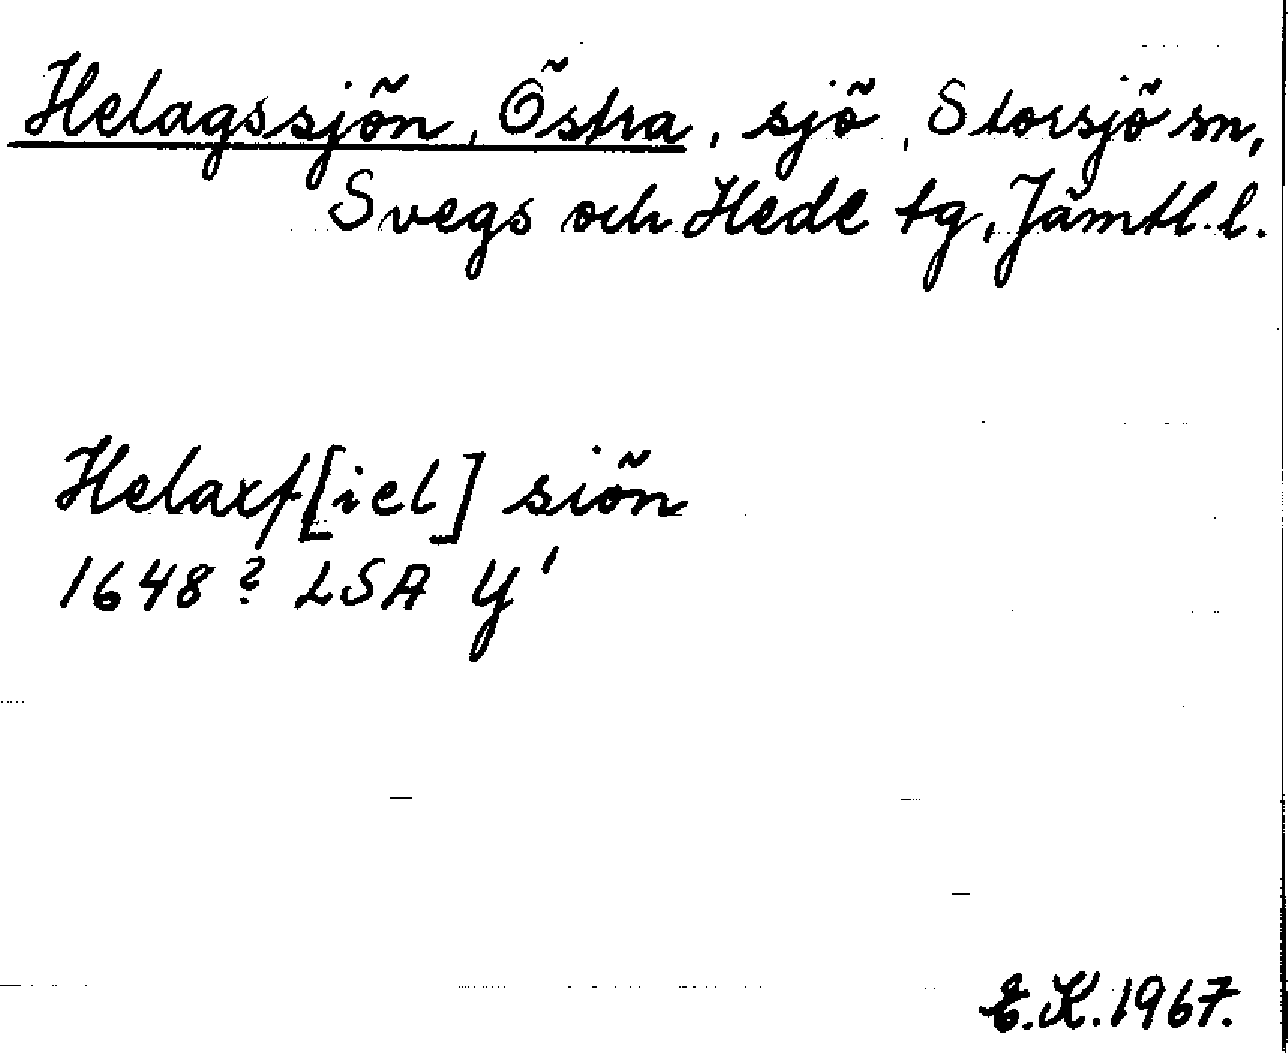 Helagssjön, Östra, sjö, Storsjö sn,
Svegs och Hede tg, Jämtl. l.
Helaxf[iel] siön
1648? LSA Y'
E.K. 1967.